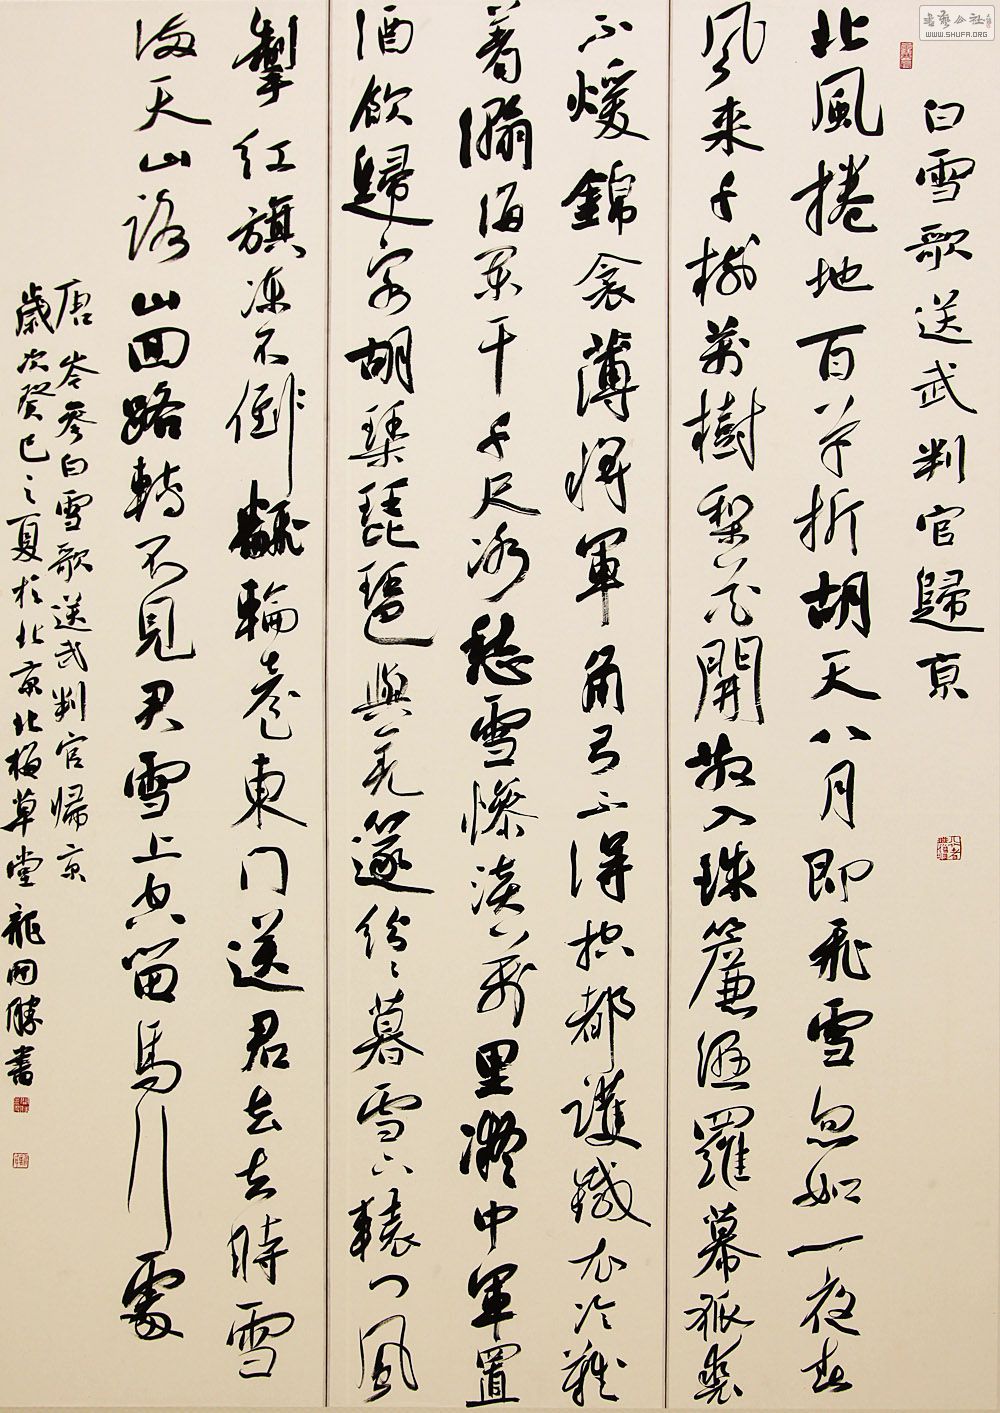 白雪歌送武判官歸京
北風捲地百草折胡天八月即飛雪忽如一夜春
风来千树萬樹梨花開散入珠簾濕羅幕狐裘
不煖錦衾薄將軍角弓不得控都護鐵衣冷難
着瀚海闌干千尺冰愁雪慘淡萬里凝中軍置
酒飲歸客胡琴琵琶與羌篴紛紛暮雪下轅門風
掣紅旗凍不倒翻輪臺東門送君去去時雪
滿天山路山回路轉不見君雪上空留馬行處
唐岑參白雪歌送武判官歸京
歲次癸巳之夏於北京北梅草堂龍開勝書
书艺公社
WWW.SHUFA.ORG